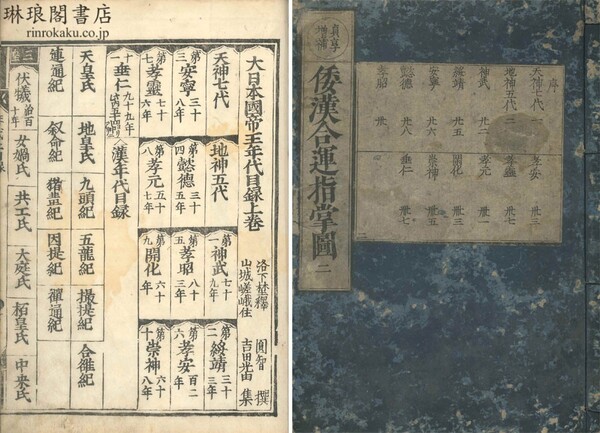 琳琅閣書店
rinrokaku.co.jp
大日本國帝王年代目録上巻
洛下埜釋 圓智 撰
山城嵯峨住 吉田光由 集
天神七代 地神五代 第一 神武 七十九年 第二 綏靖 三十三年
第三 安寧 三十八年 第四 懿德 三十四年 第五 孝昭 八十三年 第六 孝安 百二年
第七 孝靈 七十六年 第八 孝元 五十七年 第九 開化 六十年 第十 崇神 六十八年
十一 垂仁 九十九年 漢年代目録
天皇氏 地皇氏 九頭紀 五龍紀 攝提紀 合雒紀
連通紀 叙命紀 循蜚紀 因提紀 禪通紀
三皇 伏羲 治百十年 女媧氏 共工氏 大庭氏 栢皇氏 中央氏
貞享増補
倭漢合運指掌圖 二
序
天神七代 一 孝安
地神五代 二 孝靈
神武 廿二 孝元
綏靖 廿五 開化 卅三
安寧 廿六 崇神 卅五
懿德 廿八 垂仁 卅七
孝昭 卅